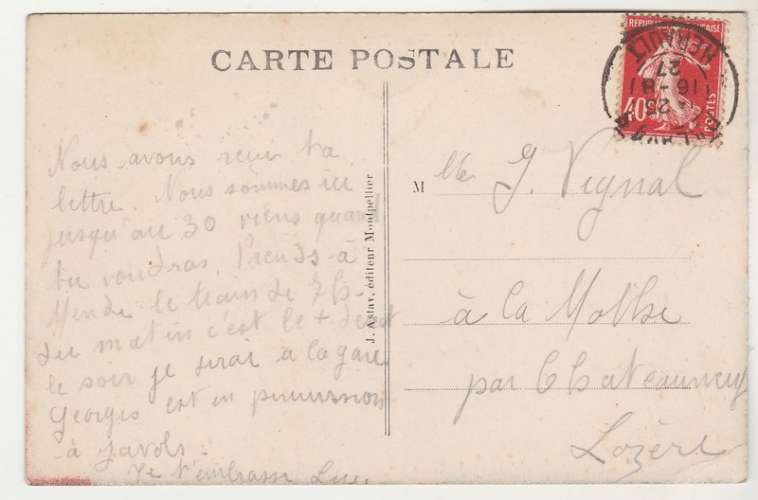 CARTE POSTALE
Nous avons reçu ta
lettre. Nous sommes ici
jusqu'au 30 viens quand
tu voudras. Prends à
Mende le train de 7h
du matin c'est le + direct
le soir je serai à la gare
Georges est en permission
à Javols.
Je t'embrasse
J. Astay, éditeur Montpellier
M lle J. Vignal
à la Mothe
par Chateauneuf
Lozère
REPUBLIQUE FRANÇAISE
40c
POSTES
HERAULT
27
16-8
25